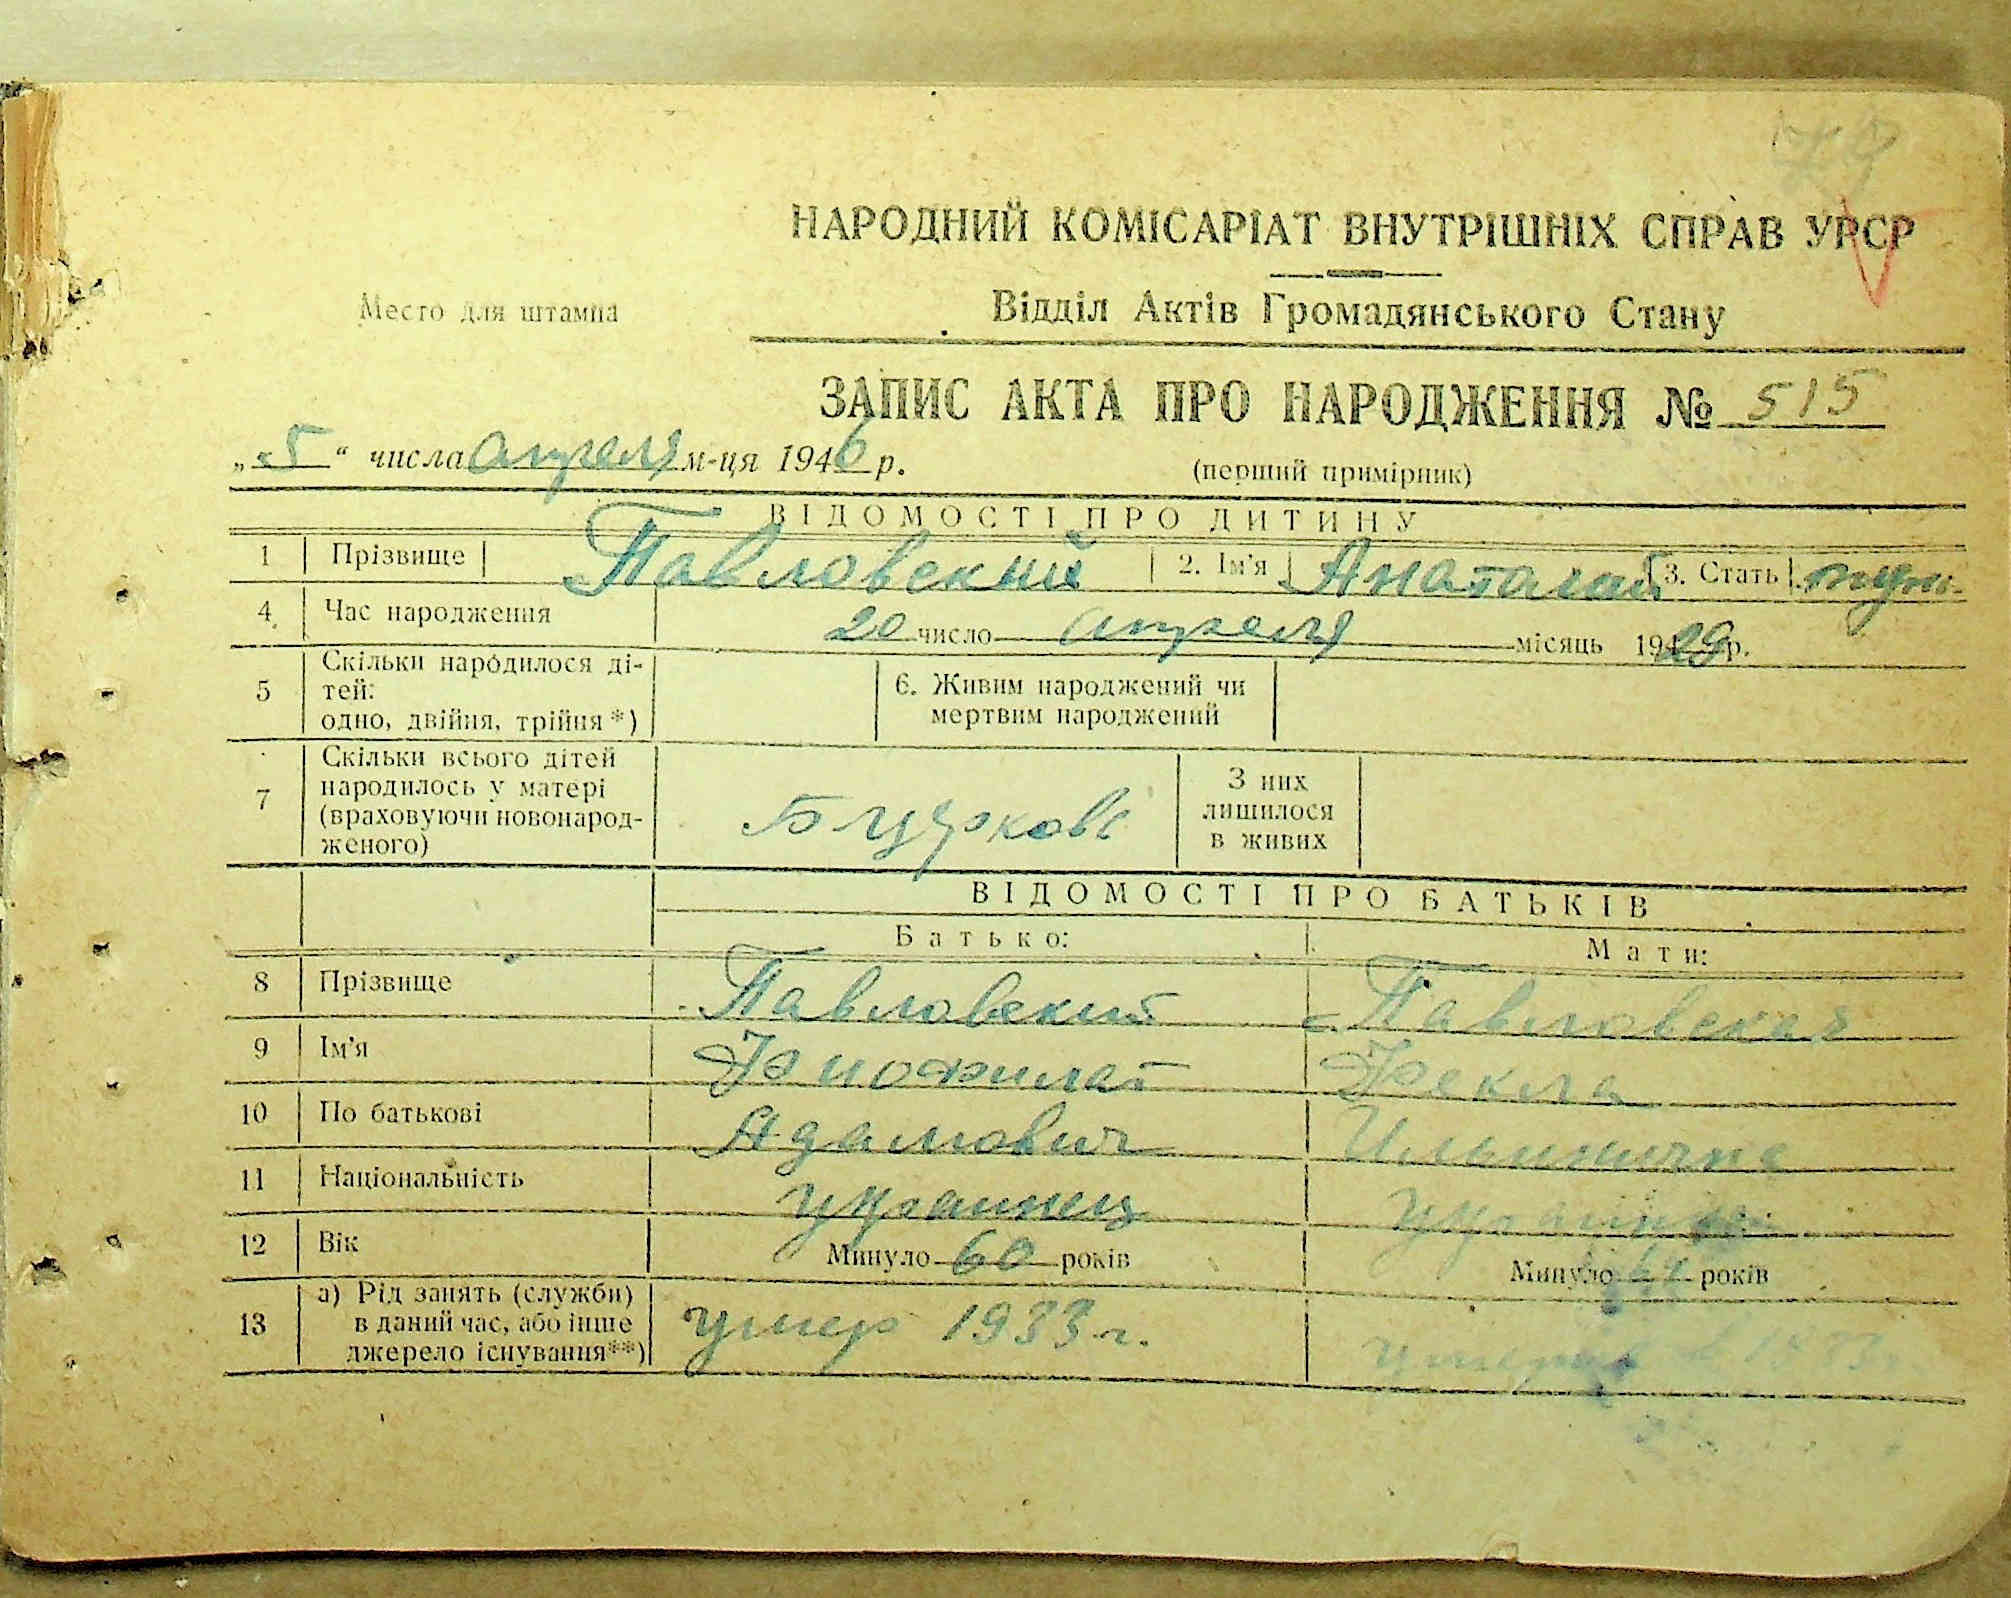 79
НАРОДНИЙ КОМІСАРІАТ ВНУТРІШНІХ СПРАВ УРСР
Место для штампа
Відділ Актів Громадянського Стану
ЗАПИС АКТА ПРО НАРОДЖЕННЯ № 515
„5“ числа апреля м-ця 1946 р.
(перший примірник)
ВІДОМОСТІ ПРО ДИТИНУ
1 Прізвище Павловский 2. Ім'я Анатолий 3. Стать муж.
4 Час народження 20 число апреля місяць 1929 р.
5 Скільки народилося ді-
тей:
одно, двійня, трійня*)
6. Живим народжений чи
мертвим народжений
7 Скільки всього дітей
народилось у матері
(враховуючи новонарод-
женого)
З них
лишилося
в живих
ВІДОМОСТІ ПРО БАТЬКІВ
Батько: Мати:
8 Прізвище Павловский Павловская
9 Ім'я Фекла
10 По батькові Адамович Ильинична
11 Національність украинец украинка
12 Вік Минуло 60 років Минуло років
13 а) Рід занять (служби)
в даний час, або інше
джерело існування**)
умер 1933 г.